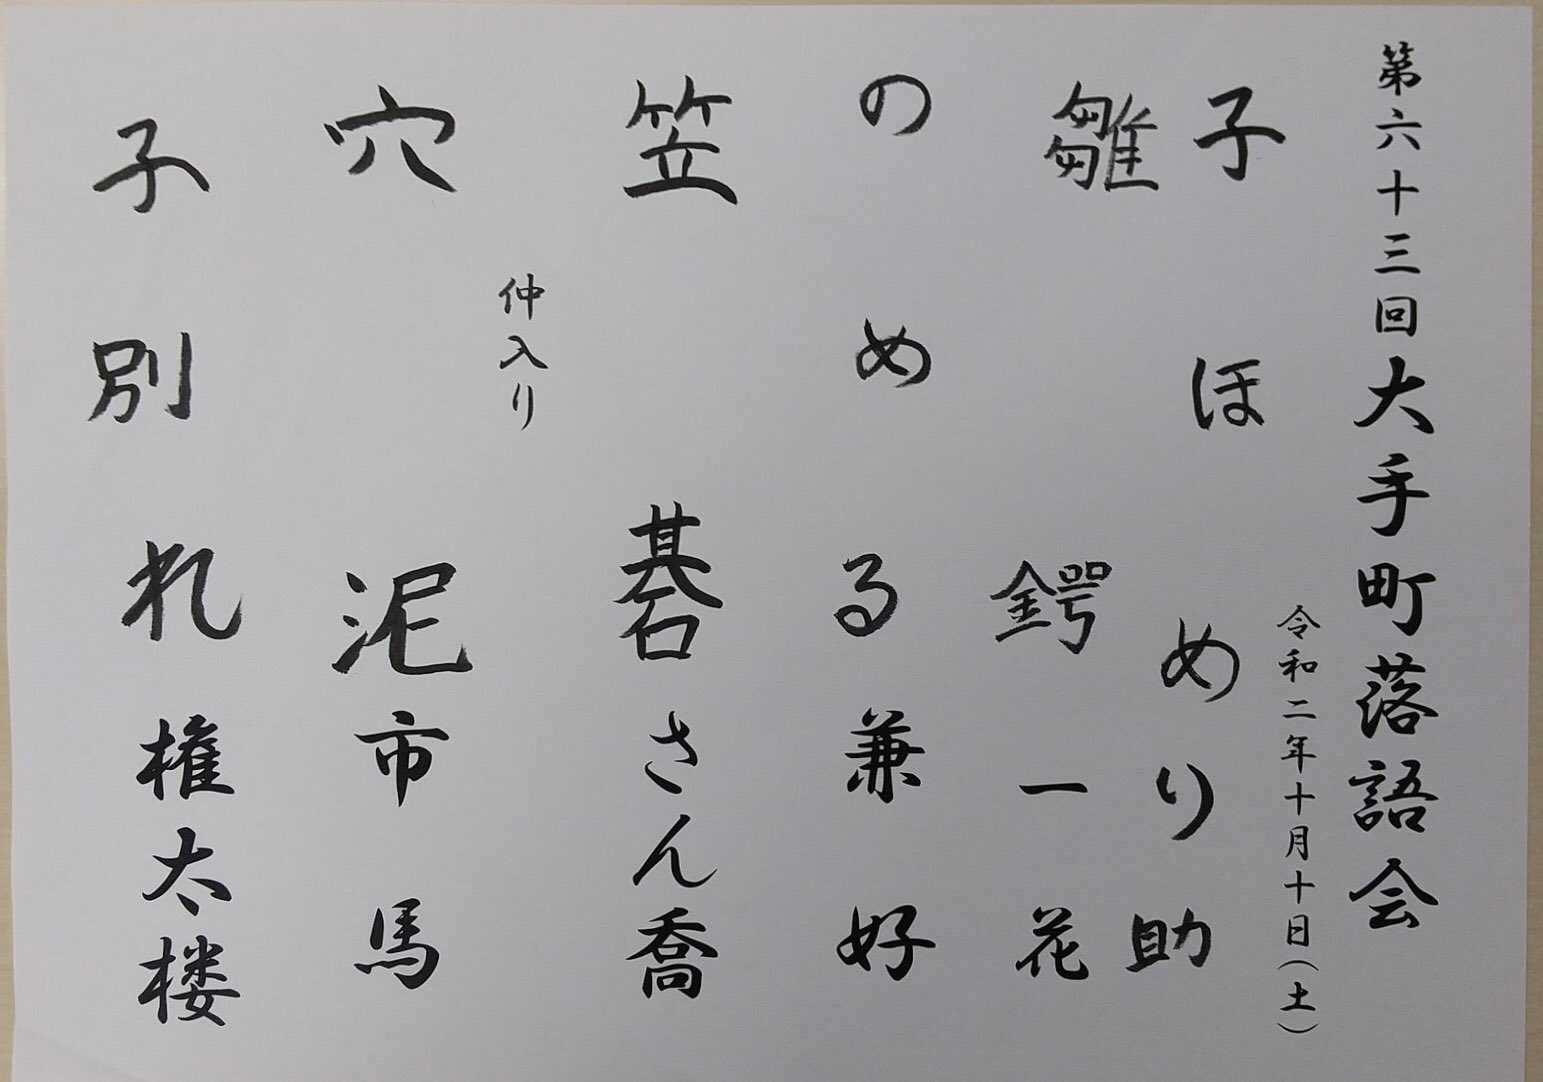 第六十三回大手町落語会
令和二年十月十日(土)
子ほめり助
雛鍔一花
のめる兼好
笠碁さん喬
仲入り
穴泥市馬
子別れ権太楼